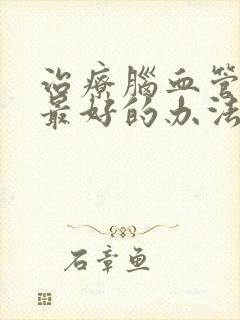 治療腦血管
最好的办法
石章鱼